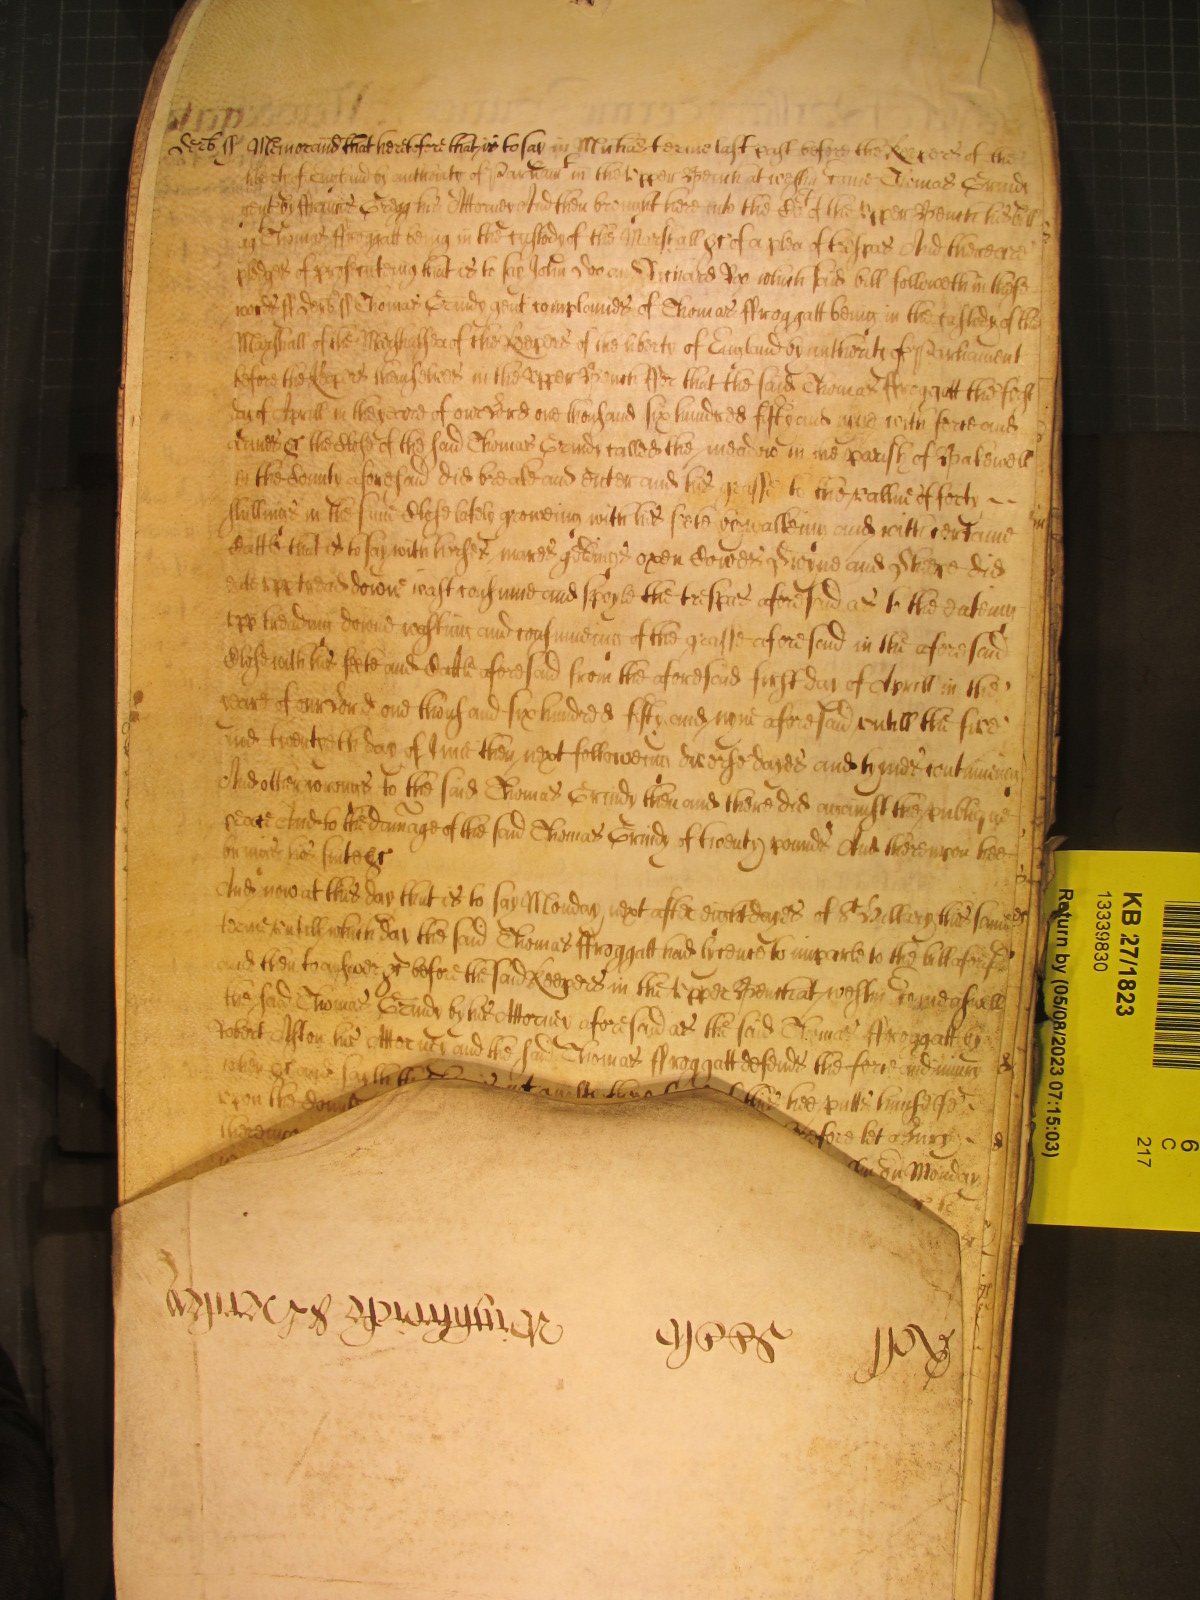 Derb ss Memorand that heretofore that is to say in Michas terme last past before the Keepers of the
liberty of England by authority of Parliamt in the Upper Bench at Westm came Thomas Grundy
gent by Francis Gregg his Attorney And then brought here into the Cort of the Upper Bench his bill
agt Thomas ffroggatt being in the custody of the Marshall &c of a plea of trespas And there are
pledges of prosecuting that is to say John Doo and Richard Roo which said bill followeth in these
words ss Derb ss Thomas Grundy gent complaines of Thomas ffroggatt being in the custody of the
Marshall of the Marshalsea of the Keepers of the liberty of England by authority of Parliament
before the Keepers themselves in the Upper Bench ffor that the said Thomas ffroggatt the first
day of Aprill in the yeare of our Lord one thousand six hundred fifty and nine with force and
armes &c the Close of the said Thomas Grundy called the meadow in the parish of Bakewell
in the County aforesaid did breake and enter and his grasse to the vallue of forty
shillings in the same Close lately growing with his feete by walkeing and with certaine
Cattle that is to say with horses mares geldings oxen Cowes Swyne and Sheepe did
eate upp tread downe wast consume and spoyle the trespas aforesaid as to the eateing
upp treading downe wasting and consumeing of the grasse aforesaid in the aforesaid
Close with his feete and Cattle aforesaid from the aforesaid first day of Aprill in the
yeare of our Lord one thousand six hundred fifty and nyne aforesaid untill the five
and twentyeth day of June then next followeing diverse dayes and tymes continueing
And other wrongs to the said Thomas Grundy then and there did against the publique
peace And to the damage of the said Thomas Grundy of twenty pounds And thereupon hee
bringes his suite &c
And now at this day that is to say Monday next after eight dayes of St Hillary this same
terme untill which day the said Thomas ffroggatt had lycence to imparle to the bill aforesd
and then to answer &c before the said Keepers in the Upper Bench at Westm came aswell
the said Thomas Grundy by his Attorney aforesaid as the said Thomas ffroggatt by
Robert Aston his Attorney and the said Thomas ffroggatt defends the force and injury
when &c and saith this hee putts himselfe
upon the Countr
therefore let a Jury
on Monday
Roll
KB 27/1823
13339830
Return by (05/08/2023 07:15:03)
6
C
217